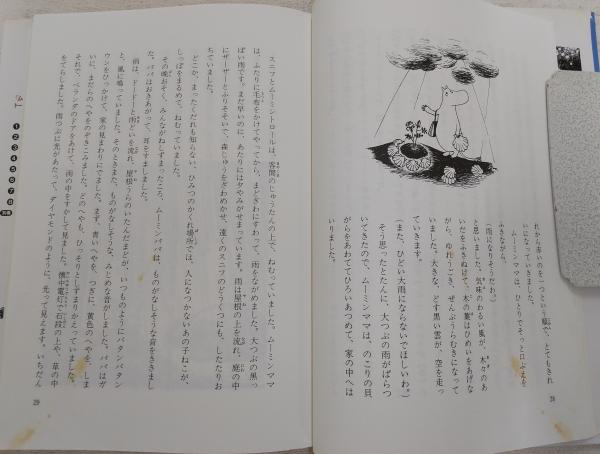 れから青いのを一つという順で、とてもきれ
いになっていきました。
ムーミンママは、ひとりでそっと口ぶえを
ふきながら、
（雨になりそうだわ。）
と思いました。気味のわるい風が、木々のあ
いだをふきぬけて、木の葉はひめいをあげな
がら、ゆれうごき、ぜんぶうらむきになって
いました。大きな、どす黒い雲が、空を走っ
ていきます。
（また、ひどい大雨にならないでほしいわ。）
そう思ったとたんに、大つぶの雨がぱらつ
いてきたので、ムーミンママは、のこりの貝
がらをあわててひろいあつめて、家の中へは
いりました。
28
スニフとムーミントロールは、客間のじゅうたんの上で、ねむっていました。ムーミンママ
は、ふたりに毛布をかけてやってから、まどぎわにすわって、雨をながめました。大つぶの黒っ
ぽい雨です。まだ早いのに、あたりには夕やみがせまっています。雨は屋根の上を流れ、庭の中
にザーザーとふりそそいで、森じゅうをざわめかせ、遠くのスニフのどうくつにも、したたりお
ちていました。
どこか、まったくだれも知らない、ひみつのかくれ場所では、人になつかないあの子ねこが、
しっぽをまるめて、ねむっていました。
その晩おそく、みんながねしずまったころ、ムーミンパパは、ものがなしそうな音をききまし
た。パパはおきあがって、耳をすましました。
雨は、ドードーと雨どいを流れ、屋根うらのいたんだまどが、いつものようにバタンバタン
と、風に鳴っていました。そのときまた、ものがなしそうな、みじめな音がしました。パパはガ
ウンをひっかけて、家の見まわりにでました。まず、青いへやを、つぎに、黄色のへやを、しま
いに、まだらのへやをのぞきこみました。どのへやも、ひっそりとしずまりかえっていました。
それで、ベランダのドアをあけて、雨の中をすかして見ました。懐中電灯で石段の上や、草の中
をてらしました。雨つぶに光があたって、ダイヤモンドのように、光って見えます。いちだん
29